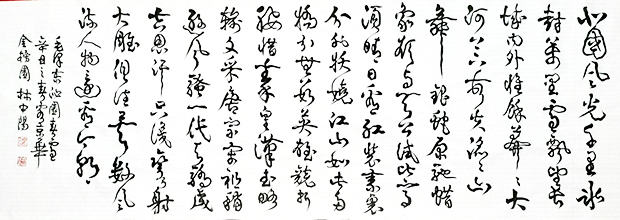 北國風光千里冰
封萬里雪飄望長
城内外惟餘莽々大
河上下頓失滔々山
舞銀蛇原馳蠟
象欲与天公試比高
須晴日看紅裝素裹
分外妖嬈江山如此多
嬌引無數英雄競折
腰惜秦皇漢武略
輸文采唐宗宋祖稍
遜風騷一代天驕成
吉思汗只識彎弓射
大雕俱往矣數風
流人物還看今朝
毛澤東沁園春雪
辛丑之春京華
金榜園 林中陽